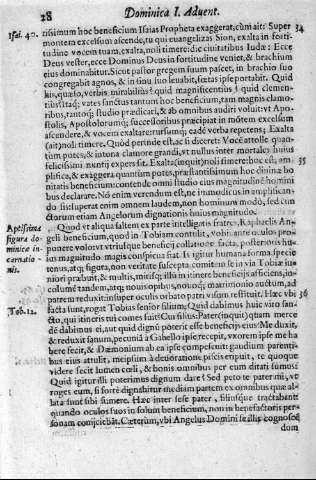 28 Dominica I. Advent.
Isai. 40. rissimum hoc beneficium Isaias Propheta exaggerat, cùm ait: Super 34
montem excelsum ascende, tu qui euangelizas Sion, exalta in forti-
tudine vocem tuam, exalta, noli timere: dic ciuitatibus Iudæ: Ecce
Deus vester, ecce Dominus Deus in fortitudine veniet, & brachium
eius dominabitur. Sicut pastor gregem suum pascet, in brachio suo
congregabit agnos, & in sinu suo leuabit, fœtas ipse portabit. Quid
his, quæso, verbis mirabilius? quid magnificentius? quid clemen-
tius? Itaq; vates sanctus tantum hoc beneficium, tam magnis clamo-
ribus, tantoq; studio prædicari, & ab omnibus audiri voluit, vt Apo-
stolis, Apostolorumq; successoribus præcipiat in motem excelsum
ascendere, & vocem exaltare: rursumq; eadē verba repetens; Exalta
(ait) noli timere. Quod perinde est ac si diceret: Voce attolle quan-
tum potes, & intona clamore grandi, vt nullus inter mortales huius
felicissimi nuntij expers sit. Exalta (inquit) noli timere: hoc est, am- 35
plifica, & exaggera quantum potes, præstantissimum hoc diuinæ bo-
nitatis beneficium: contende omni studio eius magnitudinē homini
bus declarare. Nō enim verendum est, ne immodicus in amplifican-
do sis: superat enim omnem laudem, non hominum modò, sed cun
ctorum etiam Angelorum dignationis huius magnitudo.
Aptissima figura dominicæ incarnationis. Quod vt aliqua saltem ex parte intelligatis fratres, Raphaelis An-
geli beneficium, quod in Tobiam contulit, vobis ante oculos pro-
ponere volo: vt vtriusque beneficij collatione facta, posterioris hu-
ius magnitudo magis conspicua fiat. Is igitur humana forma specie
tenus, atq; figura, non veritate suscepta, comitem se in via Tobiæ iu-
niori præbuit, & multis, mirisq; illū in itinere beneficijs afficiens, in-
columē tandem, atq; nouis opibus, nouoq; matrimonio auctum, ad
patrem reduxit: insuper oculis orbato patri visum restituit. Hæc vbi 36
Tob. 12. facta sunt, rogat Tobias senior filium: Quid dabimus huic viro san-
cto, qui itineris tui comes fuit? Cui filius: Pater (inquit) quam merce
dē dabimus ei, aut quid dignū poterit esse beneficijs eius? Me duxit,
& reduxit sanum, pecuniā à Gabelo ipse recepit, vxorem ipse me ha
bere fecit, & Dæmonium ab ea ipse compescuit: gaudium parenti-
bus eius attulit, meipsum à deuoratione piscis eripuit, te quoque
videre fecit lumen cœli, & bonis omnibus per eum ditati sumus.
Quid igitur illi poterimus dignum dare? Sed peto te pater mi, vt
roges eum, si fortè dignabitur mediam partem ex omnibus quæ al-
lata sunt sibi sumere. Hæc inter sese pater, filiusque tractabant:
quando oculos suos in solum beneficium, non in benefactoris per-
sonam conijciebāt. Cæterùm, vbi Angelus Domini se illis cognoscē
dum